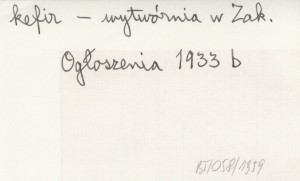 kefir – wytwórnia w Zak.
Ogłoszenia 1933 b
BJ/058/1999